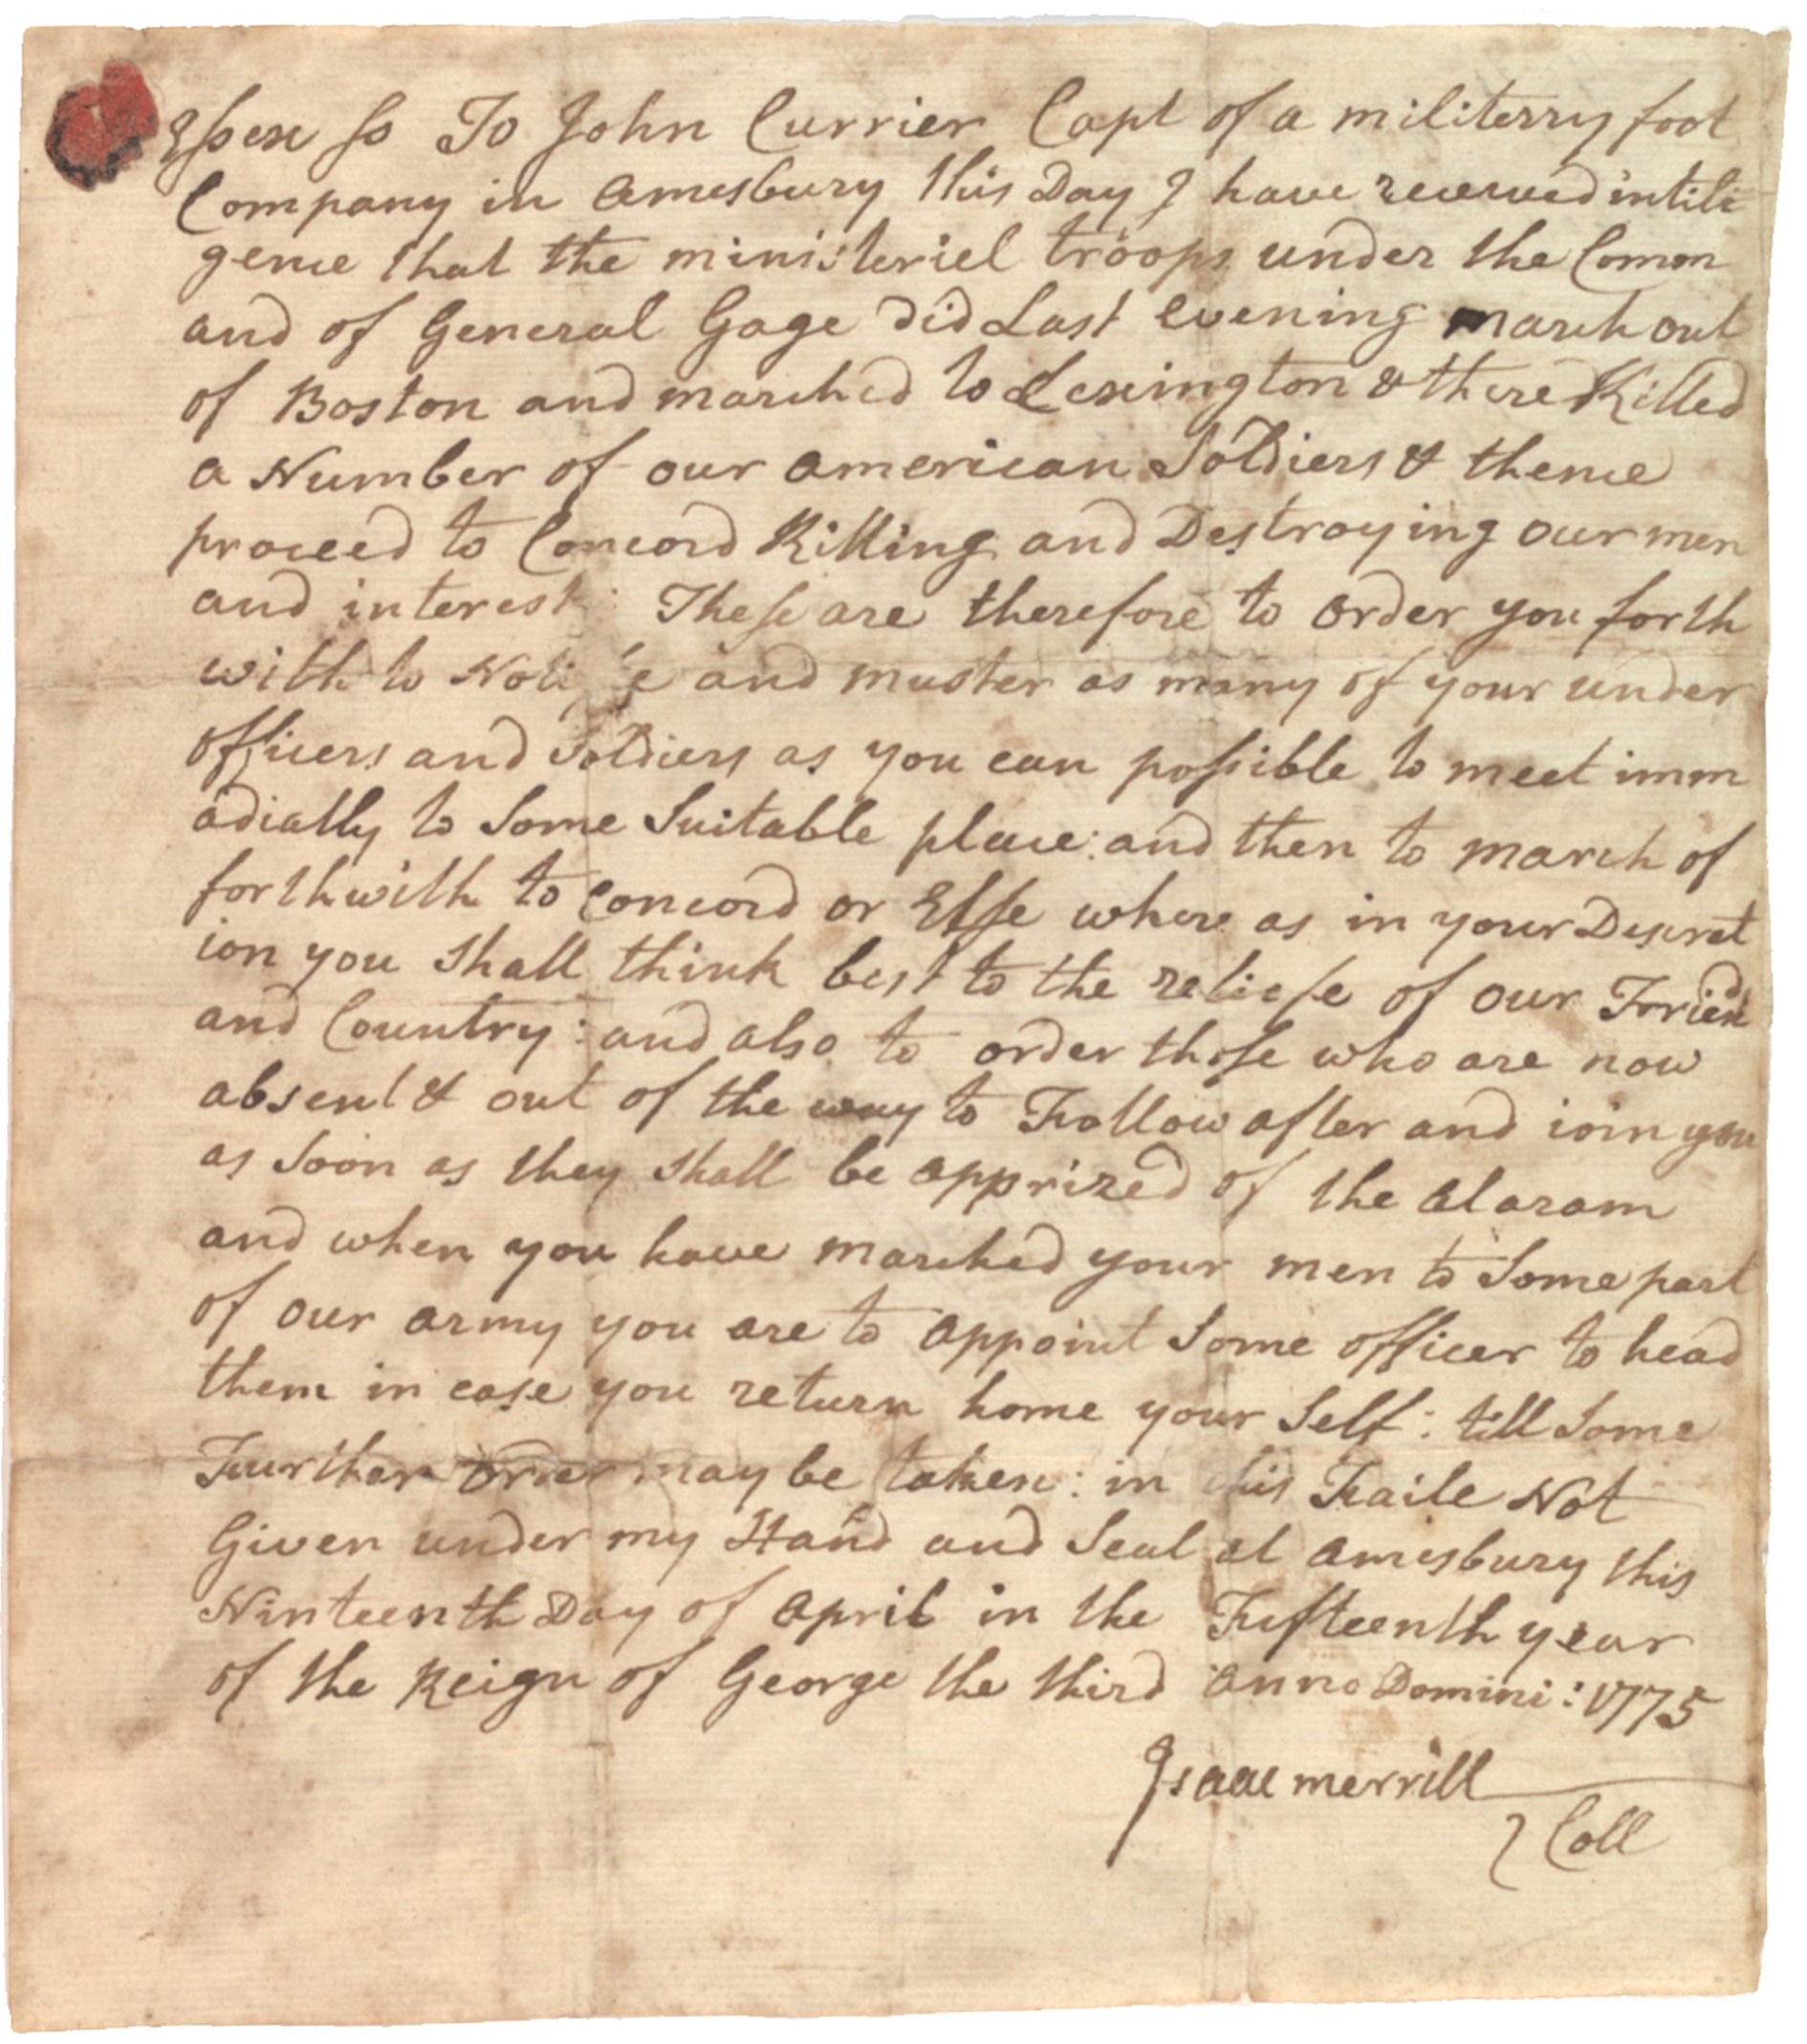 Essex ss To John Currier Capt of a militerry foot
Company in Amesbury this Day I have receved intili
gence that the ministeriel troops under the Comm
and of General Gage did Last evening march out
of Boston and marched to Lexington & there Killed
a Number of our American Soldiers & thence
proceed to Concord Killing and Destroying our men
and interest: These are therefore to order you forth
with to and muster as many of your under
officers and Soldiers as you can possible to meet imm
adiatly to Some Suitable place: and then to march of
forthwith to Concord or Else where as in your Descret
ion you Shall think best to the reliefe of our Foriend
and Country: and also to order those who are now
absent & out of the way to Follow after and ioin you
as Soon as they Shall be apprized of the Alaram
and when you have marched your men to Some part
of our army you are to appoint Some officer to head
them in case you return home your Self: till Some
Further order may be taken: in this Faile Not
Given under my Hand and Seal at Amesbury this
Ninteenth Day of April in the Fifteenth year
of the Reign of George the third Anno Domini: 1775
Isaac merrill
Coll